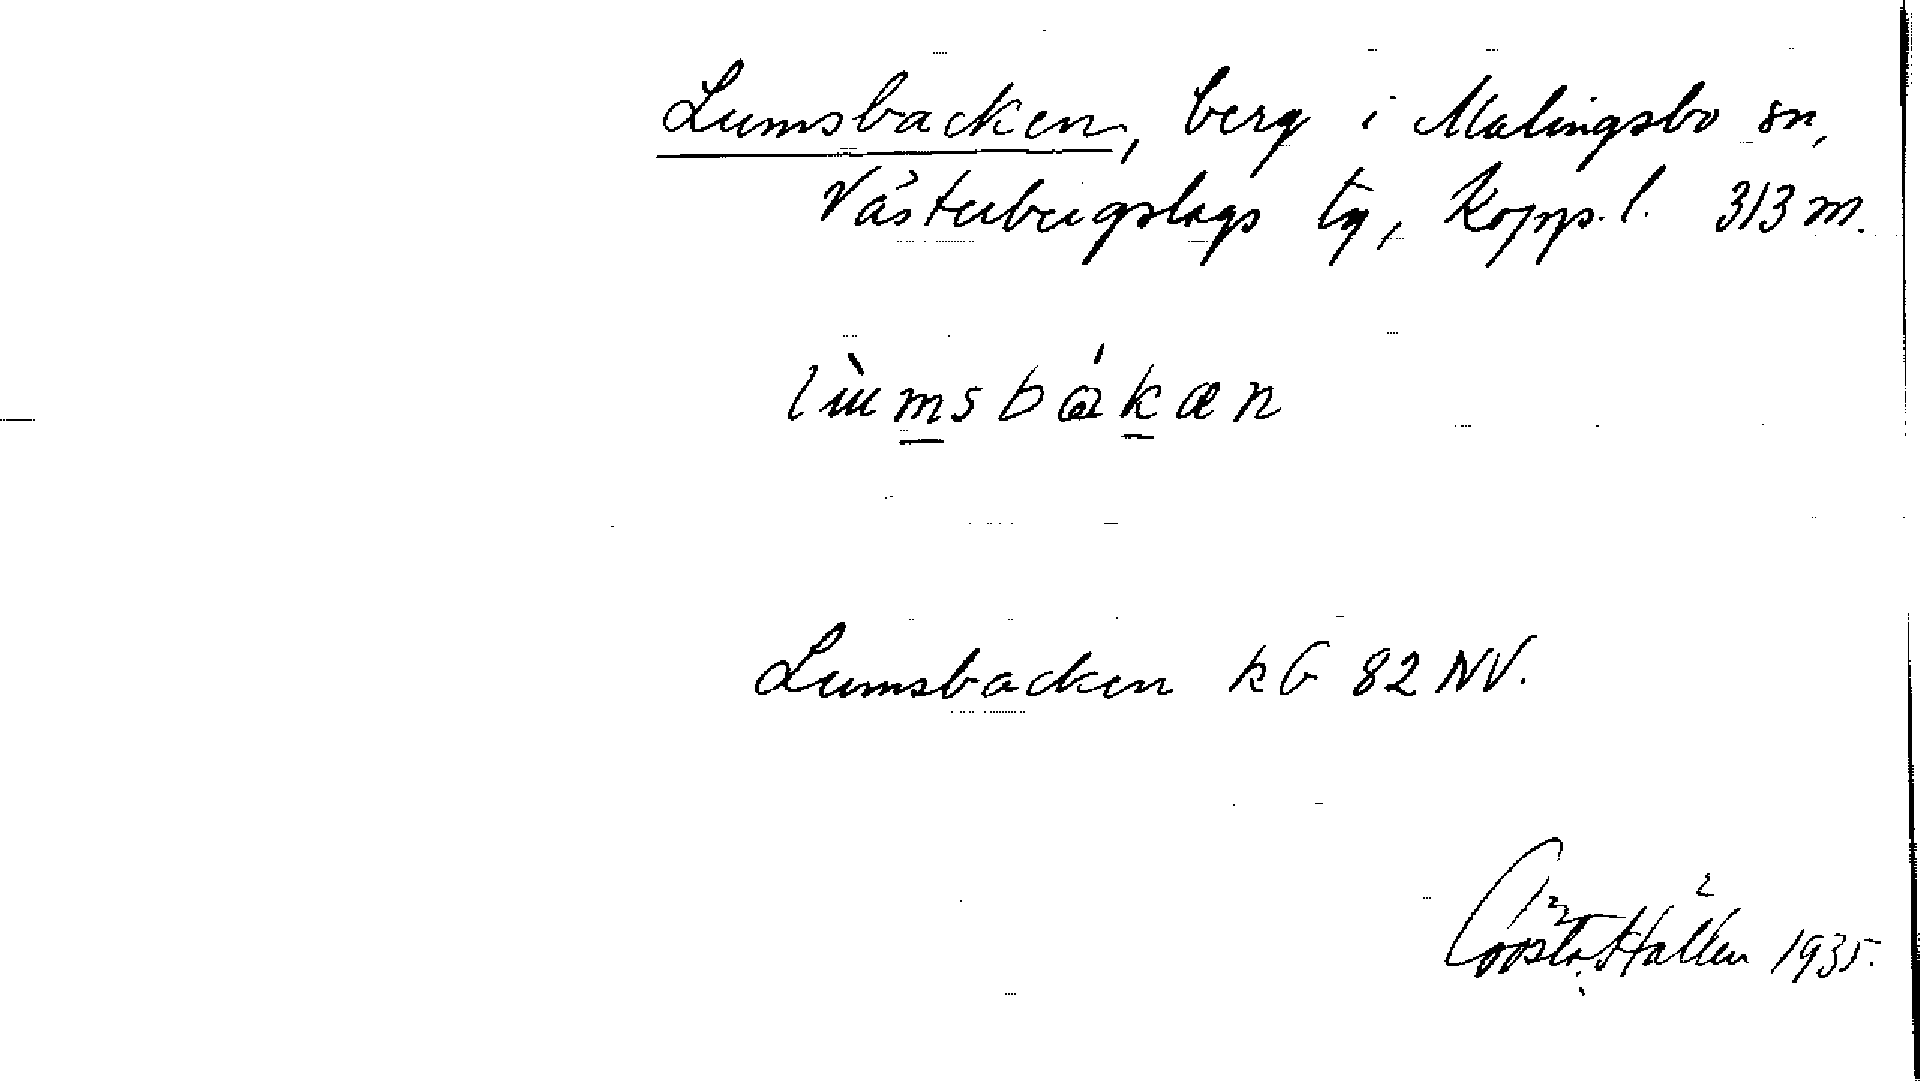 Lumsbacken, berg i Malingsbo sn,
Västerbergslags tg, Kopp. l. 313 m.
lùmsbákæn
Lumsbacken kG 82 NV.
Gösta Hållén 1935.